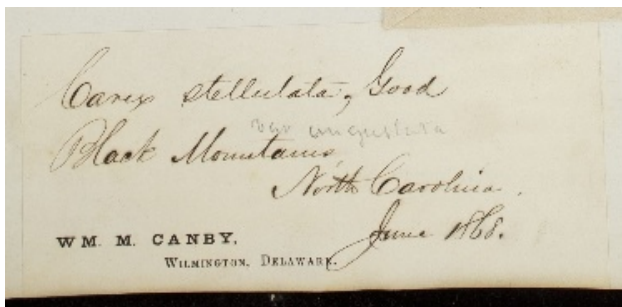 Carex stellulata, Good
var angustata
Black Mountains,
North Carolina.
June 1868.
WM. M. CANBY,
WILMINGTON, DELAWARE.